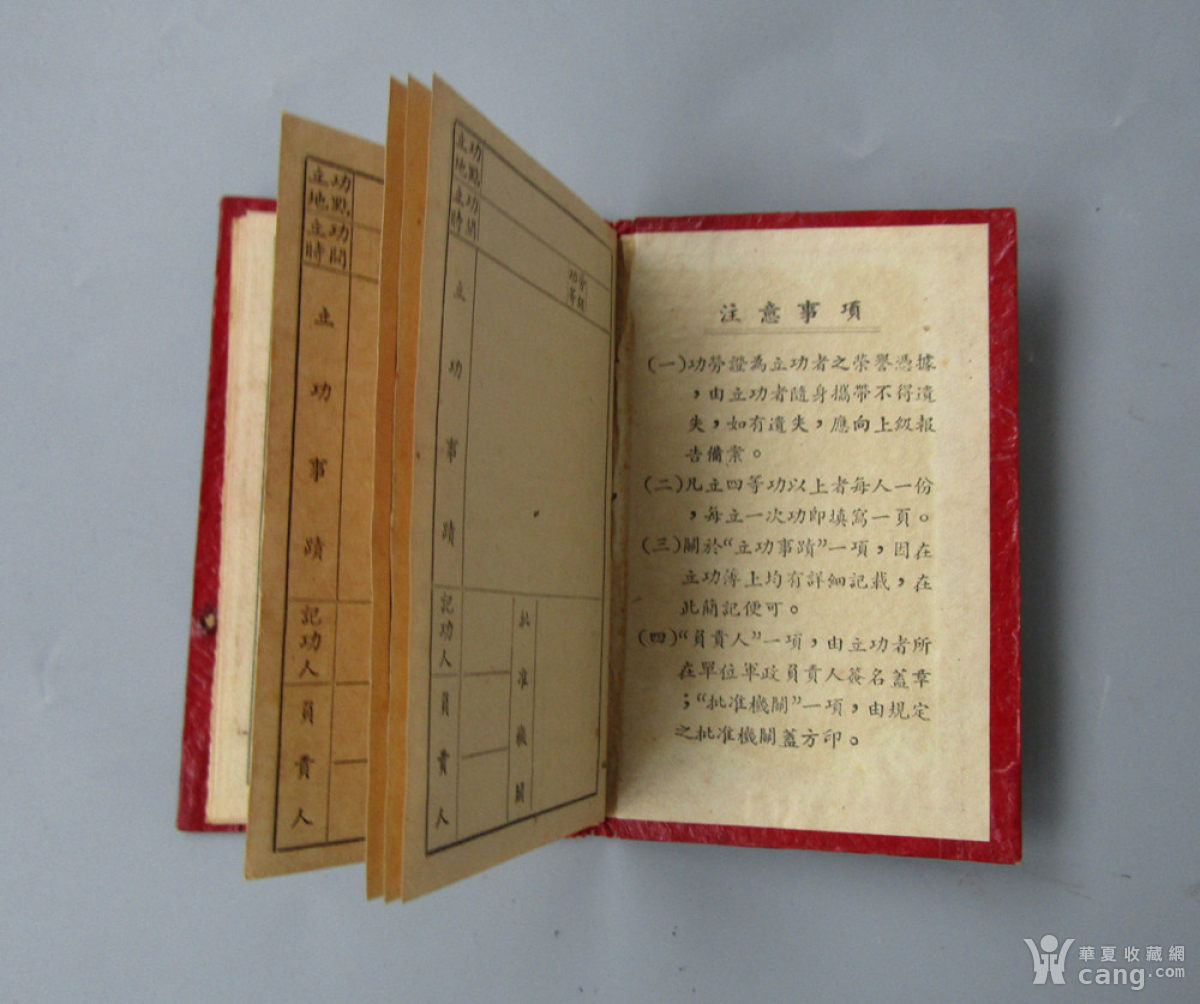 立功
地點
立功
時間
立功事蹟
記功人
負責人
立功
地點
立功
時間
功勞
等級
立功事蹟
記功人
負責人
批准機關
注意事項
(一)功勞證為立功者之榮譽憑據
，由立功者隨身攜帶不得遺
失，如有遺失，應向上級報
告備案。
(二)凡立四等功以上者每人一份
，每立一次功即填寫一頁。
(三)關於“立功事蹟”一項，因在
立功簿上均有詳細記載，在
此簡記便可。
(四)“負責人”一項，由立功者所
在單位軍政負責人簽名蓋章
；“批准機關”一項，由規定
之批准機關蓋方印。
華夏收藏網
cang.com